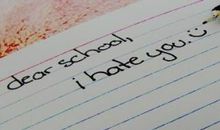 dear school,
i hate you.ü